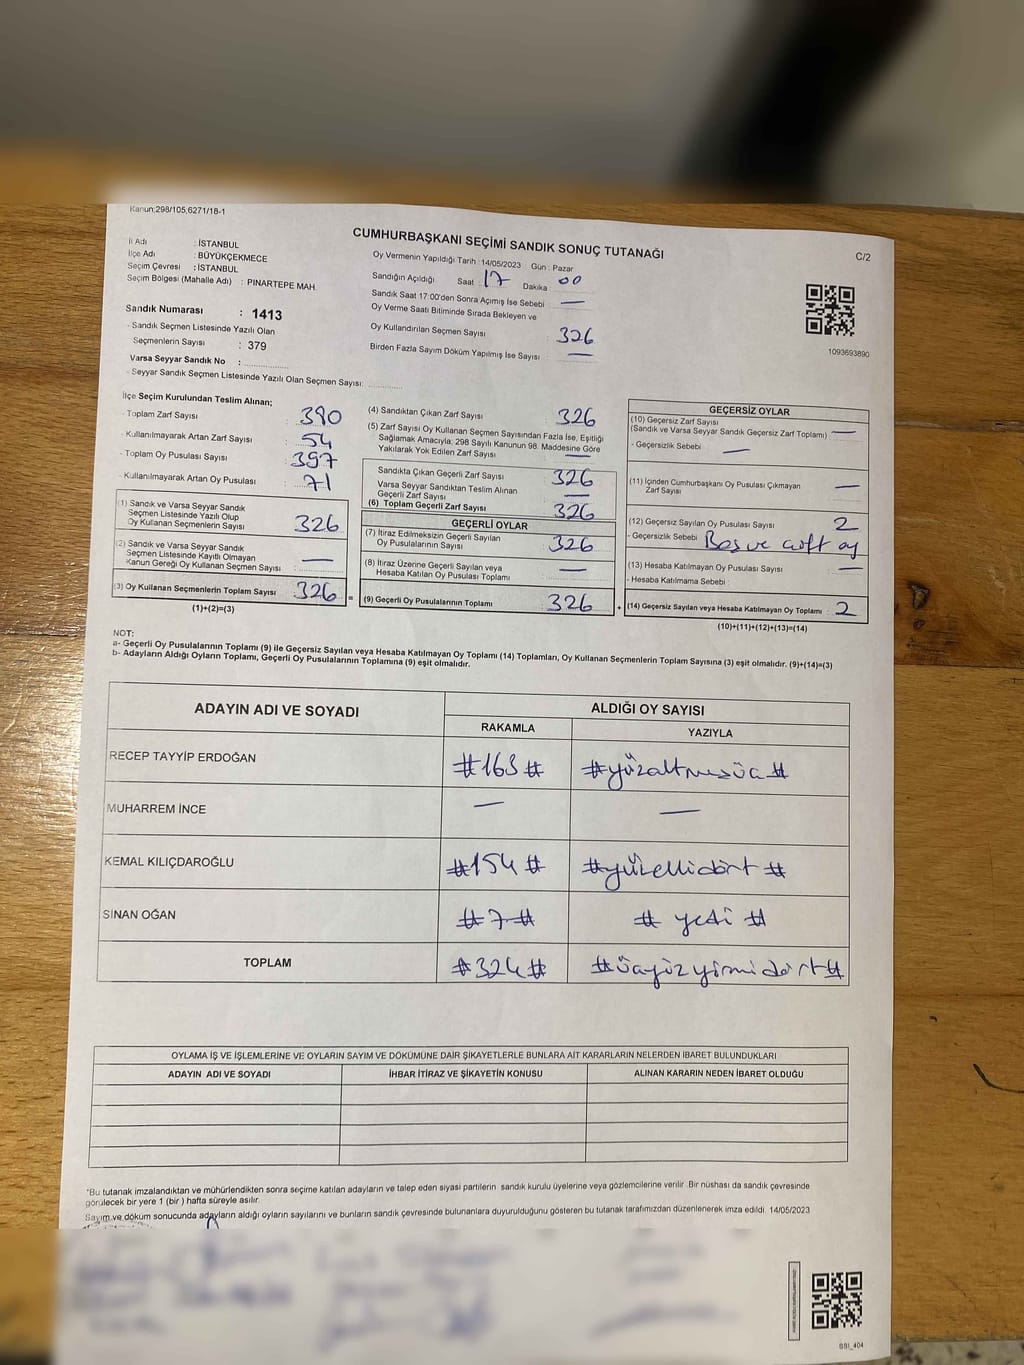 Kanun:298/105,6271/18-1
CUMHURBAŞKANI SEÇİMİ SANDIK SONUÇ TUTANAĞI
C/2
İl Adı : İSTANBUL
İlçe Adı : BÜYÜKÇEKMECE
Seçim Çevresi : İSTANBUL
Seçim Bölgesi (Mahalle Adı) : PINARTEPE MAH.
Sandık Numarası : 1413
- Sandık Seçmen Listesinde Yazılı Olan
Seçmenlerin Sayısı : 379
Varsa Seyyar Sandık No :
- Seyyar Sandık Seçmen Listesinde Yazılı Olan Seçmen Sayısı:
Oy Vermenin Yapıldığı Tarih : 14/05/2023 Gün : Pazar
Sandığın Açıldığı Saat 17 Dakika 00
Sandık Saat 17:00'den Sonra Açımış İse Sebebi —
Oy Verme Saati Bitiminde Sırada Bekleyen ve
Oy Kullandırılan Seçmen Sayısı 326
Birden Fazla Sayım Döküm Yapılmış İse Sayısı —
1093693890
İlçe Seçim Kurulundan Teslim Alınan;
- Toplam Zarf Sayısı 380
- Kullanılmayarak Artan Zarf Sayısı 54
- Toplam Oy Pusulası Sayısı 397
- Kullanılmayarak Artan Oy Pusulası 71
(1) Sandık ve Varsa Seyyar Sandık
Seçmen Listesinde Yazılı Olup
Oy Kullanan Seçmenlerin Sayısı 326
(2) Sandık ve Varsa Seyyar Sandık
Seçmen Listesinde Kayıtlı Olmayan
Kanun Gereği Oy Kullanan Seçmen Sayısı : —
(3) Oy Kullanan Seçmenlerin Toplam Sayısı 326
(1)+(2)=(3)
=
(4) Sandıktan Çıkan Zarf Sayısı 326
(5) Zarf Sayısı Oy Kullanan Seçmen Sayısından Fazla İse, Eşitliği
Sağlamak Amacıyla; 298 Sayılı Kanunun 98. Maddesine Göre
Yakılarak Yok Edilen Zarf Sayısı —
Sandıkta Çıkan Geçerli Zarf Sayısı 326
Varsa Seyyar Sandıktan Teslim Alınan
Geçerli Zarf Sayısı —
(6) Toplam Geçerli Zarf Sayısı 326
GEÇERLİ OYLAR
(7) İtiraz Edilmeksizin Geçerli Sayılan
Oy Pusulalarının Sayısı 326
(8) İtiraz Üzerine Geçerli Sayılan veya
Hesaba Katılan Oy Pusulası Toplamı —
(9) Geçerli Oy Pusulalarının Toplamı 326
+
GEÇERSİZ OYLAR
(10) Geçersiz Zarf Sayısı
(Sandık ve Varsa Seyyar Sandık Geçersiz Zarf Toplamı) —
- Geçersizlik Sebebi —
(11) İçinden Cumhurbaşkanı Oy Pusulası Çıkmayan
Zarf Sayısı —
(12) Geçersiz Sayılan Oy Pusulası Sayısı 2
- Geçersizlik Sebebi Boş ve çift oy
(13) Hesaba Katılmayan Oy Pusulası Sayısı —
- Hesaba Katılmama Sebebi
(14) Geçersiz Sayılan veya Hesaba Katılmayan Oy Toplamı 2
(10)+(11)+(12)+(13)=(14)
NOT:
a- Geçerli Oy Pusulalarının Toplamı (9) ile Geçersiz Sayılan veya Hesaba Katılmayan Oy Toplamı (14) Toplamları, Oy Kullanan Seçmenlerin Toplam Sayısına (3) eşit olmalıdır. (9)+(14)=(3)
b- Adayların Aldığı Oyların Toplamı, Geçerli Oy Pusulalarının Toplamına (9) eşit olmalıdır.
ADAYIN ADI VE SOYADI ALDIĞI OY SAYISI
RAKAMLA YAZIYLA
RECEP TAYYİP ERDOĞAN #163# #yüzaltmışüç#
MUHARREM İNCE — —
KEMAL KILIÇDAROĞLU #154# #yüzellidört#
SİNAN OĞAN #7# #yedi#
TOPLAM #324# #üçyüzyirmidört#
OYLAMA İŞ VE İŞLEMLERİNE VE OYLARIN SAYIM VE DÖKÜMÜNE DAİR ŞİKAYETLERLE BUNLARA AİT KARARLARIN NELERDEN İBARET BULUNDUKLARI
ADAYIN ADI VE SOYADI İHBAR İTİRAZ VE ŞİKAYETİN KONUSU ALINAN KARARIN NEDEN İBARET OLDUĞU
*Bu tutanak imzalandıktan ve mühürlendikten sonra seçime katılan adayların ve talep eden siyasi partilerin sandık kurulu üyelerine veya gözlemcilerine verilir. Bir nüshası da sandık çevresinde
görülecek bir yere 1 (bir) hafta süreyle asılır.
Sayım ve döküm sonucunda adayların aldığı oyların sayılarını ve bunların sandık çevresinde bulunanlara duyurulduğunu gösteren bu tutanak tarafımızdan düzenlenerek imza edildi. 14/05/2023
SSI_404